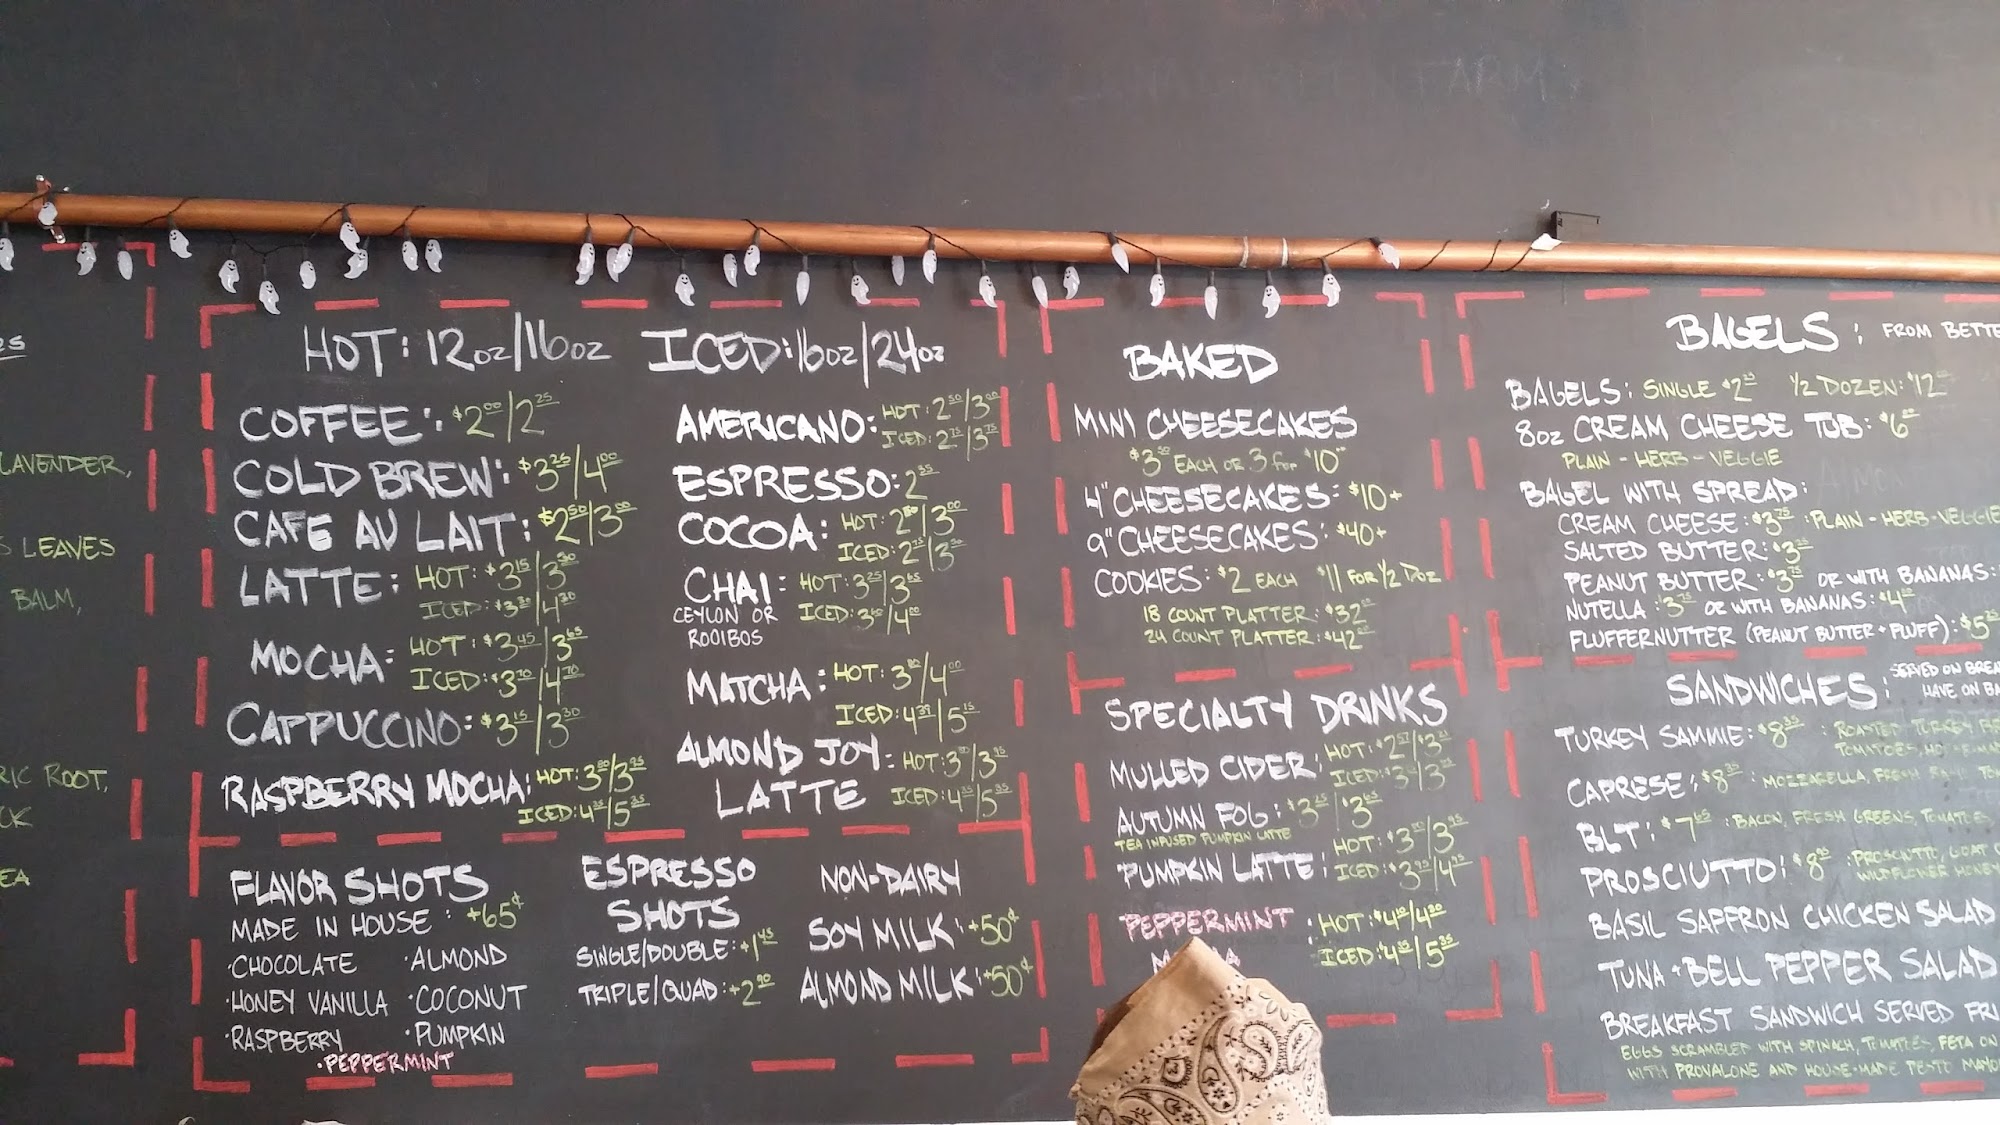 LAVENDER,
LEAVES
BALM,
ROOT,
HOT: 12oz/16oz ICED: 16oz/24oz
COFFEE: $2.00/2.25
COLD BREW: $3.25/4.00
CAFE AU LAIT: $2.50/3.00
LATTE: HOT: $3.15/3.30
ICED: $3.30/4.30
MOCHA: HOT: $3.45/3.65
ICED: $3.70/4.70
CAPPUCCINO: $3.15/3.30
RASPBERRY MOCHA: HOT: 3.80/3.95
ICED: 4.35/5.35
AMERICANO: HOT: 2.50/3.00
ICED: 2.75/3.75
ESPRESSO: 2.35
COCOA: HOT: 2.50/3.00
ICED: 2.75/3.50
CHAI: HOT: 3.25/3.65
CEYLON OR ICED: 3.60/4.00
ROOIBOS
MATCHA: HOT: 3.80/4.00
ICED: 4.39/5.15
ALMOND JOY HOT: 3.80/3.95
LATTE ICED: 4.35/5.35
FLAVOR SHOTS
MADE IN HOUSE: +65¢
·CHOCOLATE ·ALMOND
·HONEY VANILLA ·COCONUT
·RASPBERRY ·PUMPKIN
·PEPPERMINT
ESPRESSO
SHOTS
SINGLE/DOUBLE: +1.45
TRIPLE/QUAD: +2.90
NON-DAIRY
SOY MILK: +50¢
ALMOND MILK: +50¢
BAKED
MINI CHEESECAKES
$3.50 EACH OR 3 for $10
4" CHEESECAKES: $10+
9" CHEESECAKES: $40+
COOKIES: $2 EACH $11 FOR 1/2 DOZ
18 COUNT PLATTER: $32
24 COUNT PLATTER: $42
SPECIALTY DRINKS
MULLED CIDER: HOT:
ICED:
AUTUMN FOG: $3.25/$3.65
TEA INFUSED PUMPKIN LATTE
PUMPKIN LATTE: HOT: $3.80/3.95
ICED: $3.95/4.75
PEPPERMINT: HOT: $4.10/4.20
ICED: $4.35/5.35
BAGELS: FROM BETTE
BAGELS: SINGLE $2.25 1/2 DOZEN: $12
8oz CREAM CHEESE TUB: $6
PLAIN - HERB - VEGGIE
BAGEL WITH SPREAD:
CREAM CHEESE: $3.75 : PLAIN - HERB - VEGGIE
SALTED BUTTER: $3.25
PEANUT BUTTER: $3.75 OR WITH BANANAS:
NUTELLA: $3.75 OR WITH BANANAS: $4
FLUFFERNUTTER (PEANUT BUTTER + FLUFF): $5.25
SANDWICHES: SERVED ON BREA
HAVE ON BA
TURKEY SAMMIE: $8.35 : ROASTED TURKEY
TOMATOES,
CAPRESE: $8 : MOZZARELLA, FRESH
BLT: $7.65 : BACON, FRESH GREENS, TOMATOES,
PROSCIUTTO: $8 : PROSCIUTTO, GOAT
WILDFLOWER HONEY
BASIL SAFFRON CHICKEN SALAD
TUNA + BELL PEPPER SALAD
BREAKFAST SANDWICH SERVED FRI
EGGS SCRAMBLED WITH SPINACH, TOMATOES, FETA ON
WITH PROVALONE AND HOUSE-MADE PESTO MAYO